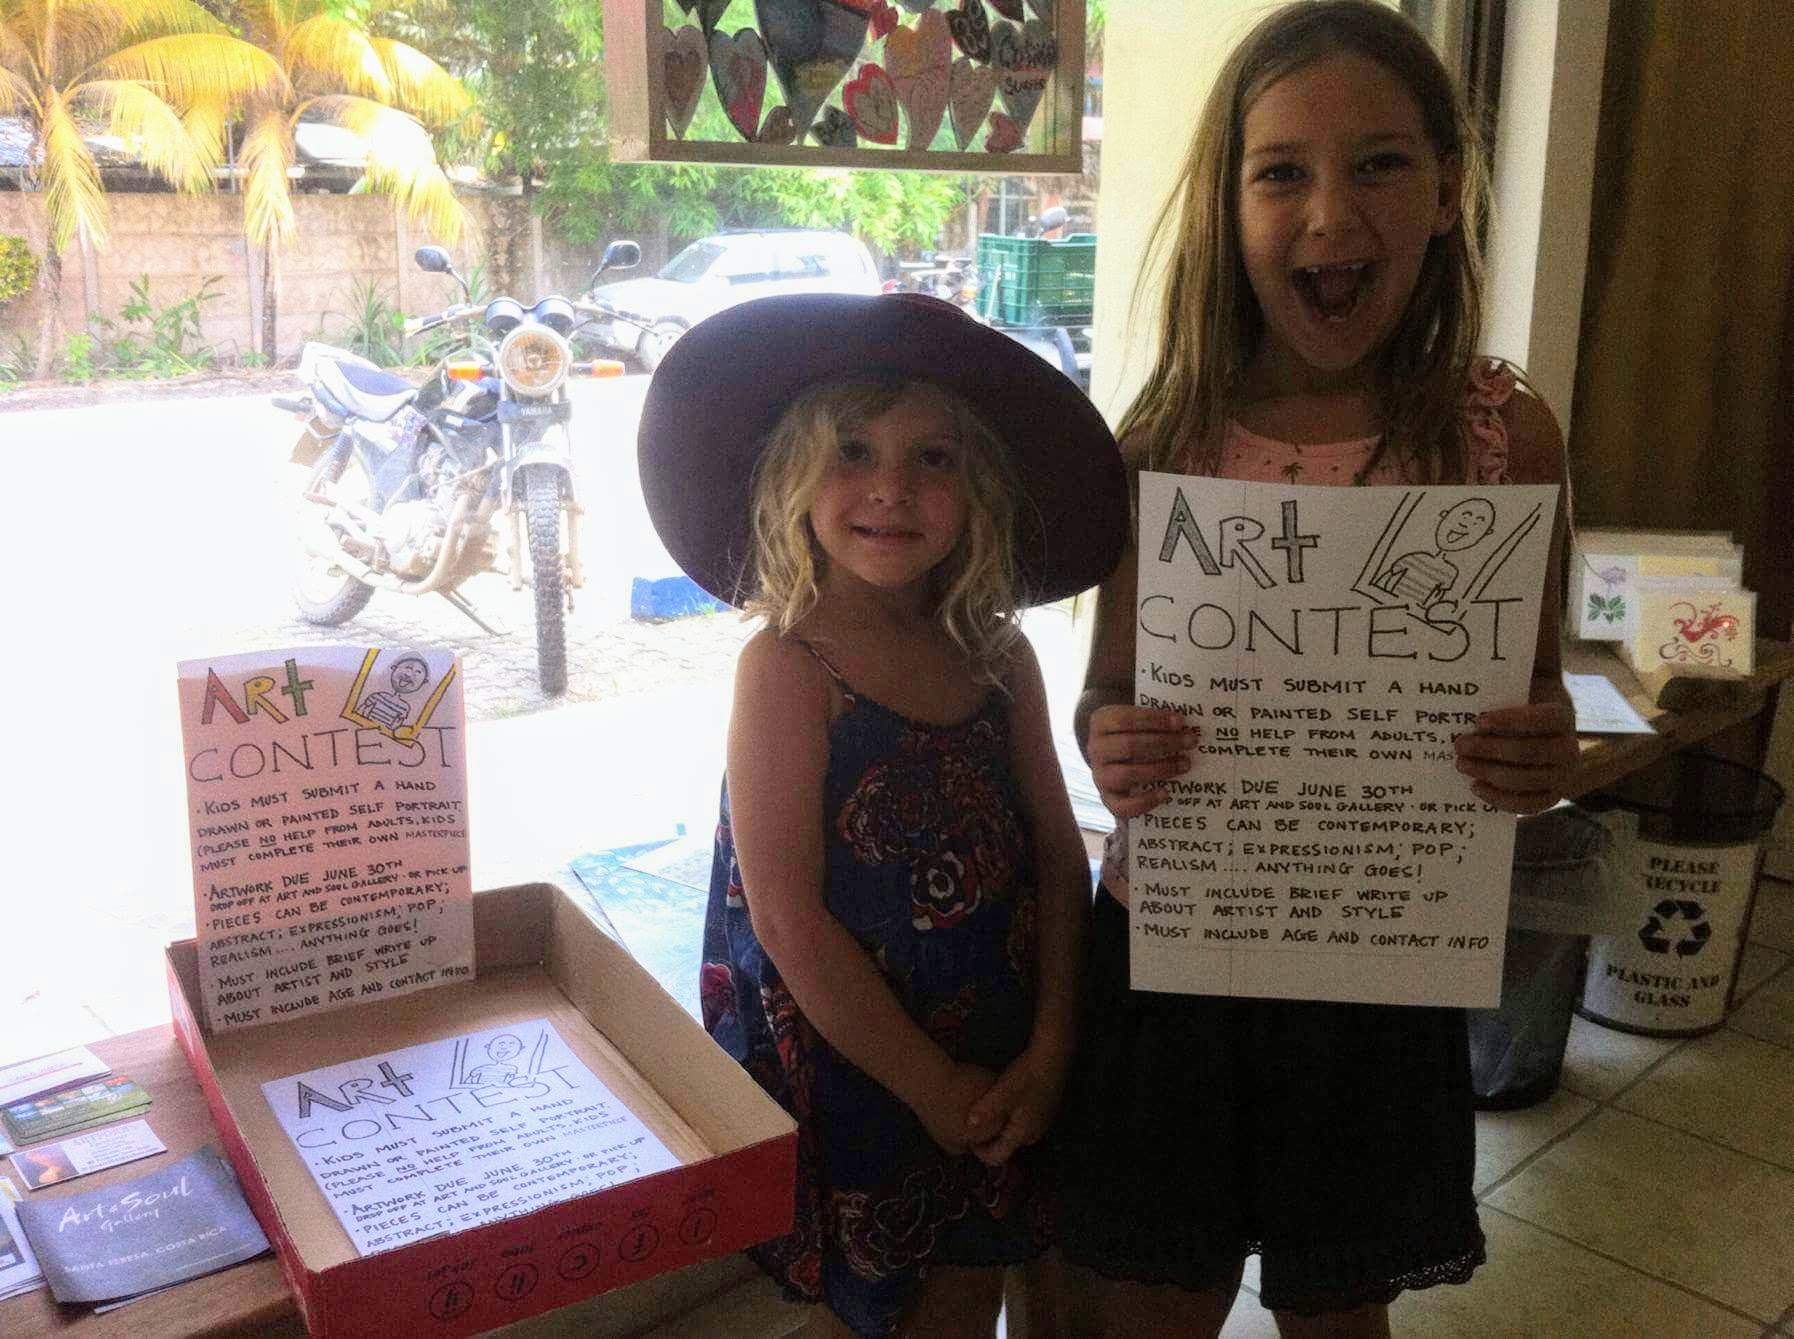 Custom
YAMAHA
ART
CONTEST
• KIDS MUST SUBMIT A HAND
DRAWN OR PAINTED SELF PORTRAIT
(PLEASE NO HELP FROM ADULTS, KIDS
MUST COMPLETE THEIR OWN MASTERPIECE
• ARTWORK DUE JUNE 30TH
DROP OFF AT ART AND SOUL GALLERY • OR PICK UP
• PIECES CAN BE CONTEMPORARY;
ABSTRACT; EXPRESSIONISM; POP;
REALISM .... ANYTHING GOES!
• MUST INCLUDE BRIEF WRITE UP
ABOUT ARTIST AND STYLE
• MUST INCLUDE AGE AND CONTACT INFO
ART
CONTEST
• KIDS MUST SUBMIT A HAND
DRAWN OR PAINTED SELF PORTRAIT
(PLEASE NO HELP FROM ADULTS, KIDS
MUST COMPLETE THEIR OWN MASTERPIECE
• ARTWORK DUE JUNE 30TH
DROP OFF AT ART AND SOUL GALLERY • OR PICK UP
• PIECES CAN BE CONTEMPORARY;
ABSTRACT; EXPRESSIONISM; POP;
ANYTHING GOES!
Art & Soul
Gallery
SANTA TERESA, COSTA RICA
ART
CONTEST
• KIDS MUST SUBMIT A HAND
DRAWN OR PAINTED SELF PORTR
NO HELP FROM ADULTS, K
COMPLETE THEIR OWN MAS
ARTWORK DUE JUNE 30TH
DROP OFF AT ART AND SOUL GALLERY • OR PICK U
PIECES CAN BE CONTEMPORARY;
ABSTRACT; EXPRESSIONISM; POP;
REALISM .... ANYTHING GOES!
• MUST INCLUDE BRIEF WRITE UP
ABOUT ARTIST AND STYLE
• MUST INCLUDE AGE AND CONTACT INFO
PLEASE
RECYCLE
PLASTIC AND
GLASS